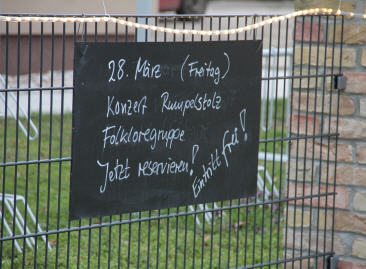 28. März (Freitag)
Konzert Rumpelstolz
Folkloregruppe
Jetzt reservieren!
Eintritt frei!